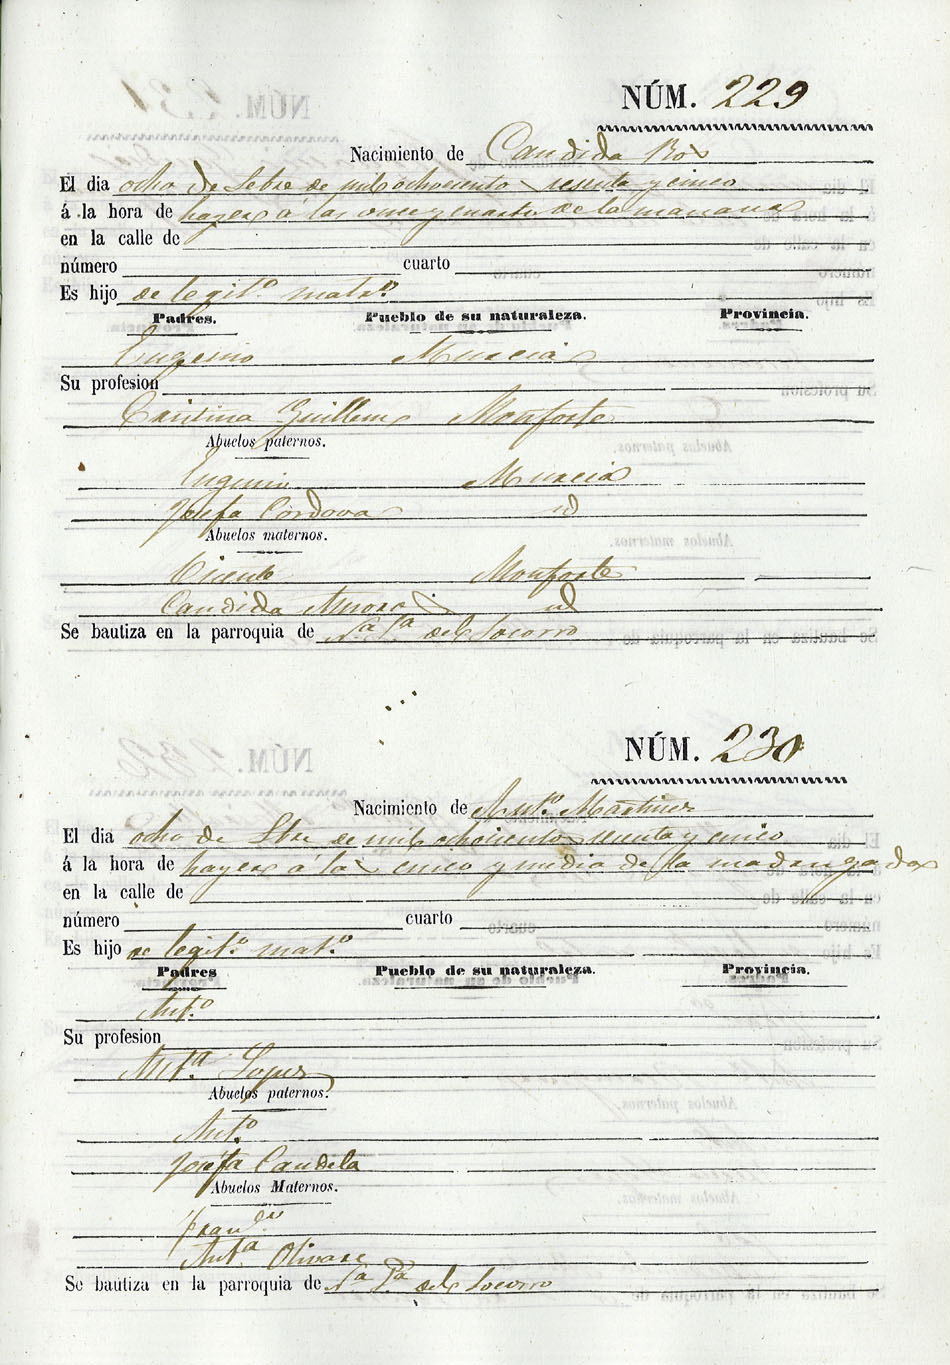 NÚM. 229
Nacimiento de Candida Ros
El dia ocho de Setbre de mil ochocientos sesenta y cinco
á la hora de hayer á las once y cuarto de la mañana
en la calle de
número cuarto
Es hijo de legit.º matr.º
Padres. Pueblo de su naturaleza. Provincia.
Eugenio Murcia
Su profesion
Cristina Guillem Monforte
Abuelos paternos.
Eugenio Murcia
Josefa Cordova id
Abuelos maternos.
Vicente Monforte
Candida id
Se bautiza en la parroquia de N.ª S.ª del Socorro
NÚM. 230
Nacimiento de Ant.º Martinez
El dia ocho de Stbre de mil ochocientos sesenta y cinco
á la hora de hayer á las cinco y media de la madrugada
en la calle de
número cuarto
Es hijo de legit.º mat.º
Padres Pueblo de su naturaleza. Provincia.
Ant.º
Su profesion
Ant.ª Lopez
Abuelos paternos.
Ant.º
Josefa Candela
Abuelos Maternos.
Fran.co
Ant.ª Olivare
Se bautiza en la parroquia de N.ª S.ª del Socorro